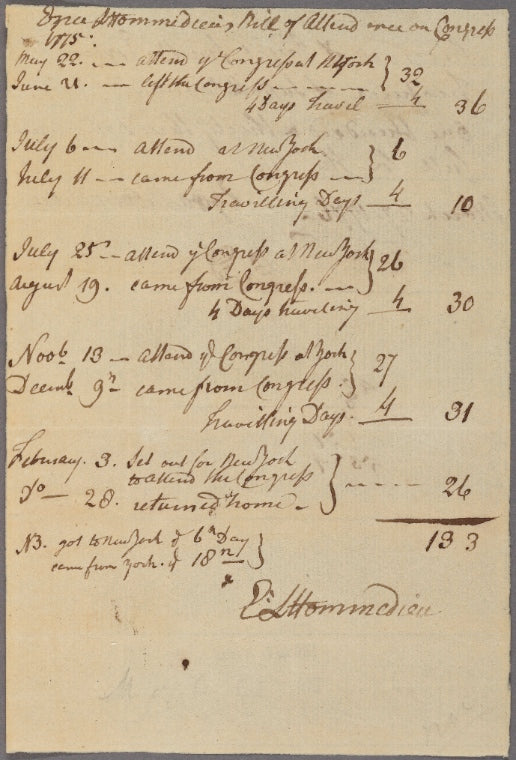 Ezra LHommedieu's Bill of Attendance on Congress
1775:
May 22. -- attend ye Congress at NYork } 32
June 21. -- left the Congress ----
4 Days Travel -- 4 36
July 6 -- attend at New York } 6
July 11 -- came from Congress --
Travilling Days 4 10
July 25th -- attend ye Congress at New York } 26
August 19. came from Congress. --
4 Days traviling 4 30
Novbr 13 -- attend ye Congress at York } 27
Decembr 9th came from Congress.
Travilling Days. 4 31
February. 3. Set out for New York
to attend the Congress } ---- 26
Do -- 28. returned home -
133
NB. got to New York ye 6th Day }
came from York. ye 18th
E: LHommedieu